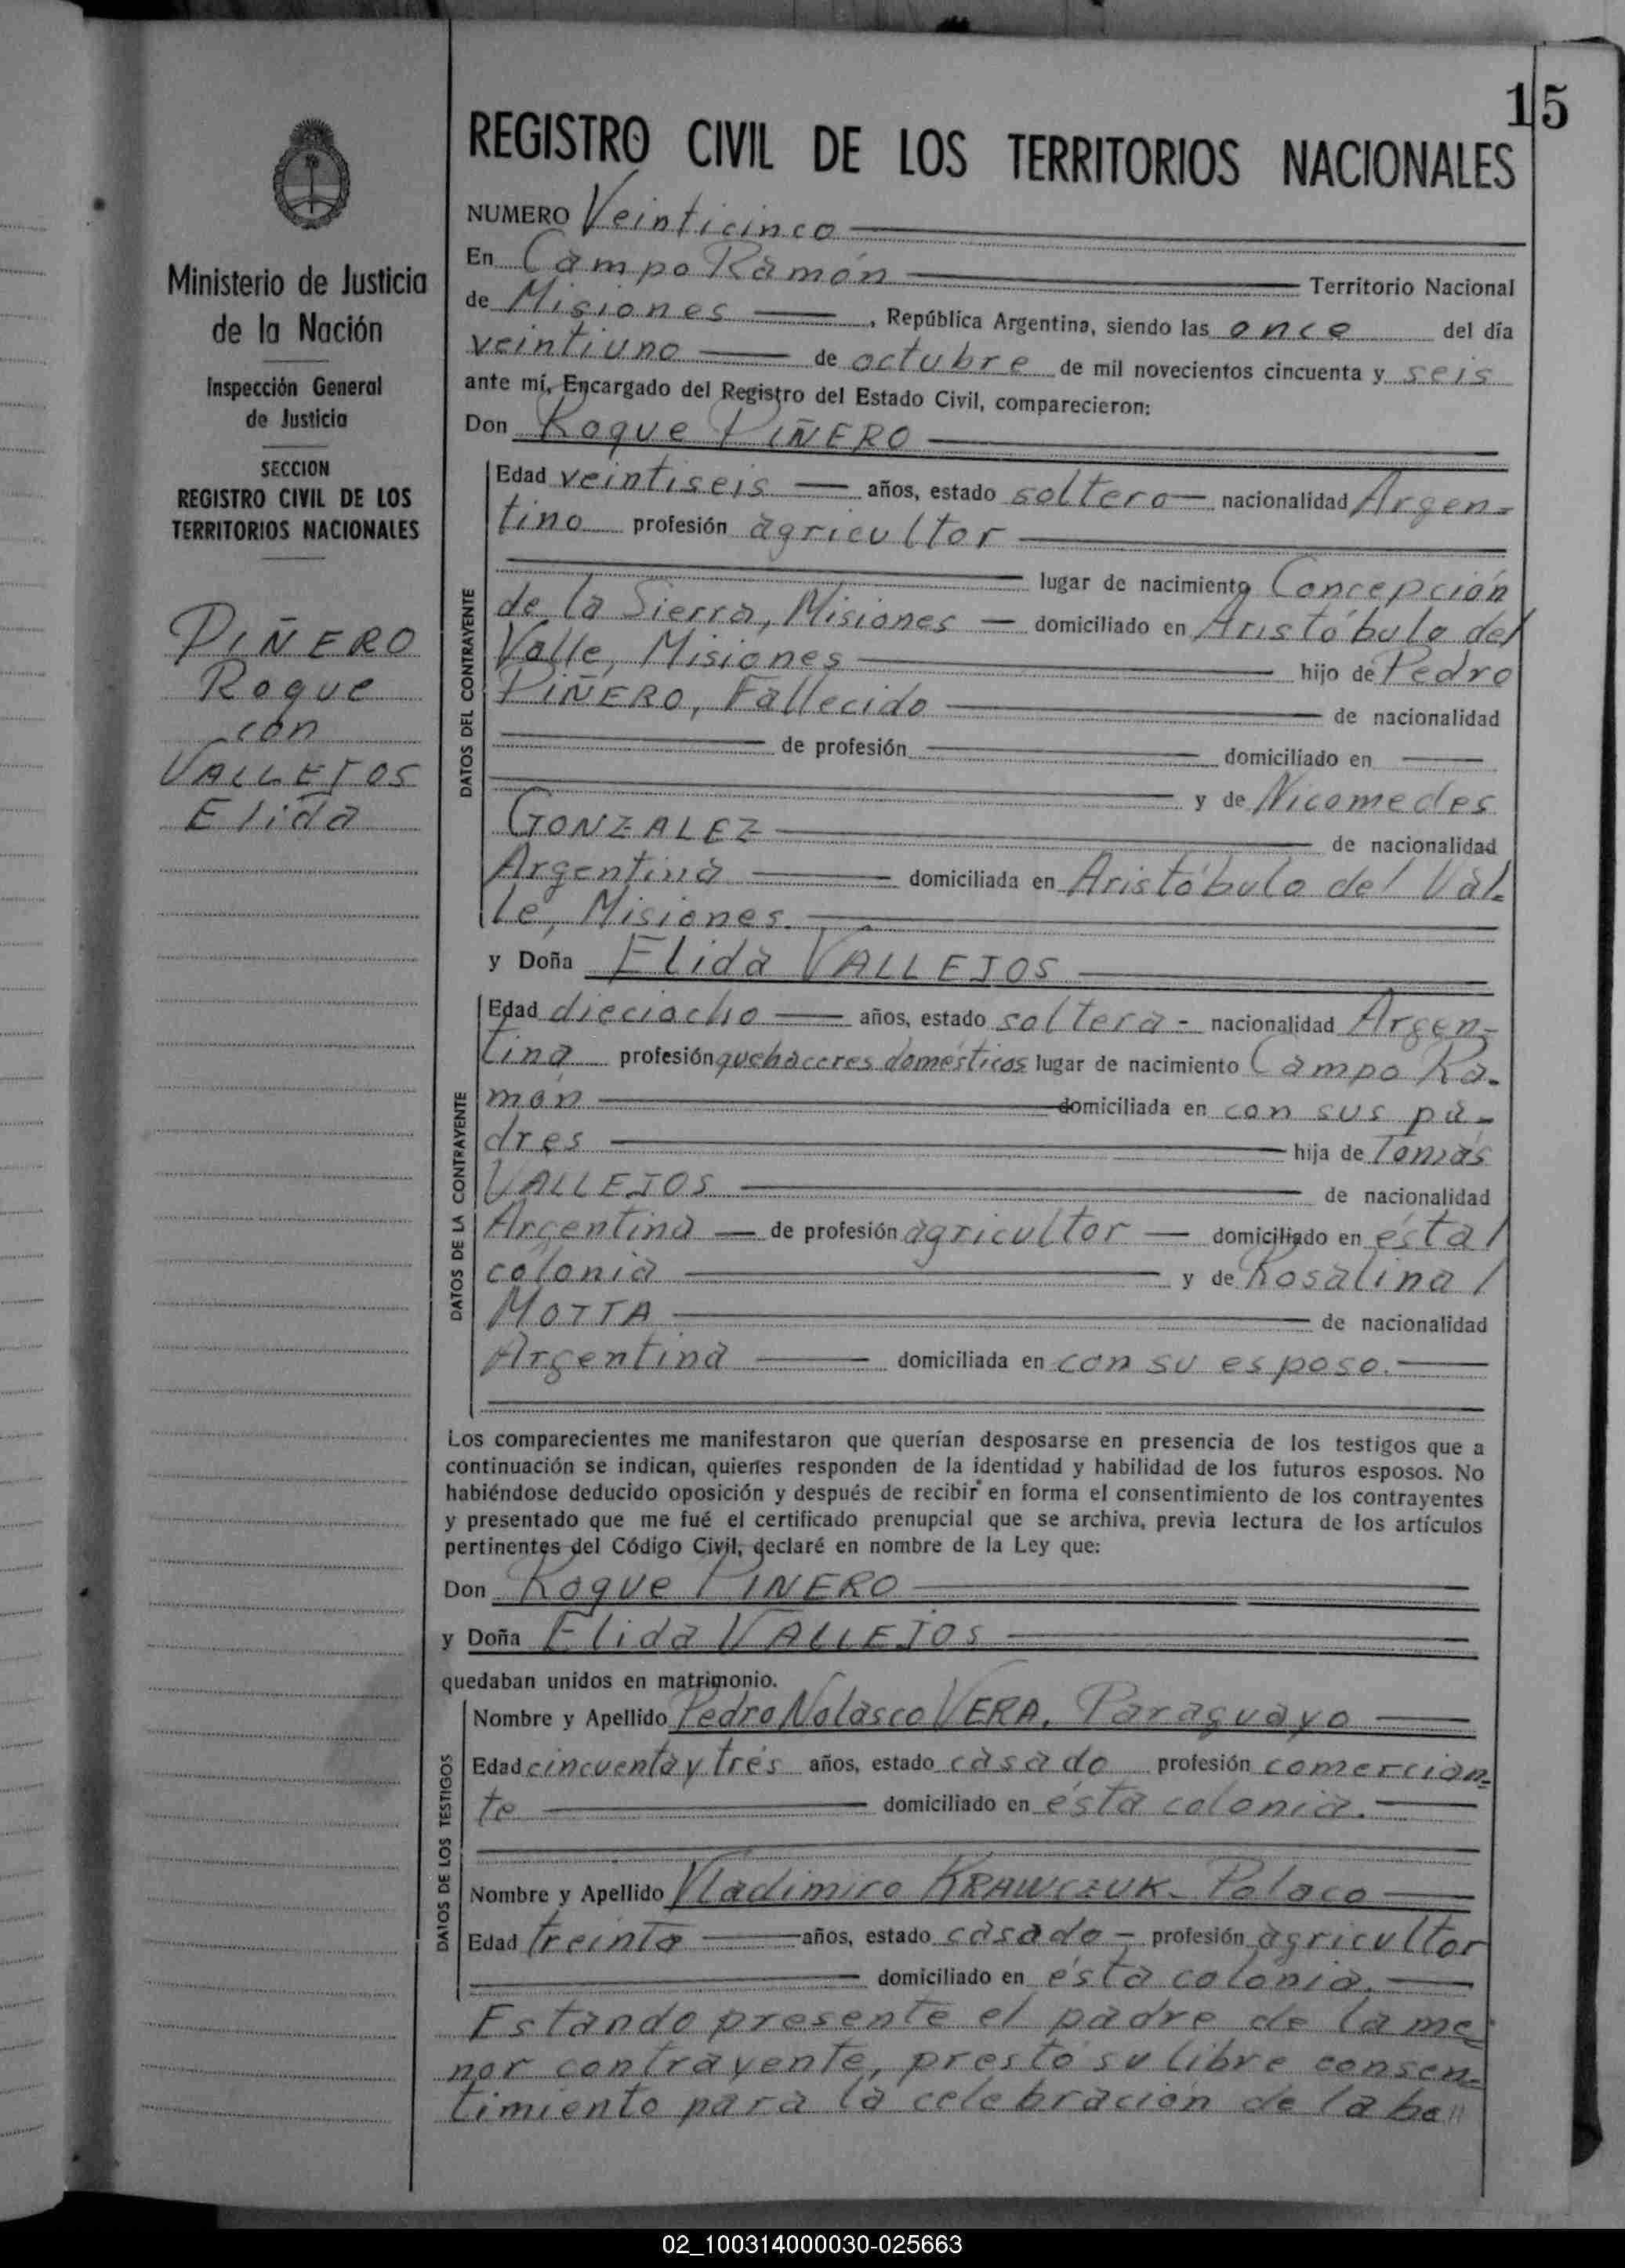 15
REGISTRO CIVIL DE LOS TERRITORIOS NACIONALES
Ministerio de Justicia
de la Nación
Inspección General
de Justicia
SECCION
REGISTRO CIVIL DE LOS
TERRITORIOS NACIONALES
PIÑERO
Roque
con
VALLEJOS
Elida
NUMERO Veinticinco
En Campo Ramón Territorio Nacional
de Misiones, República Argentina, siendo las once del día
veintiuno de octubre de mil novecientos cincuenta y seis
ante mí, Encargado del Registro del Estado Civil, comparecieron:
Don Roque PIÑERO
DATOS DEL CONTRAYENTE
Edad veintiseis años, estado soltero nacionalidad Argen-
tino profesión agricultor
lugar de nacimiento Concepción
de la Sierra, Misiones domiciliado en Aristóbulo del
Valle, Misiones hijo de Pedro
PIÑERO, Fallecido de nacionalidad
de profesión domiciliado en
y de Nicomedes
GONZALEZ de nacionalidad
Argentina domiciliada en Aristóbulo del Val-
le, Misiones.
y Doña Elida VALLEJOS
DATOS DE LA CONTRAYENTE
Edad dieciocho años, estado soltera - nacionalidad Argen-
tina profesión quehaceres domésticos lugar de nacimiento Campo Ra-
món domiciliada en con sus pa-
dres hija de Tomás
VALLEJOS de nacionalidad
Argentina de profesión agricultor domiciliado en ésta /
colonia y de Rosalina /
MOTTA de nacionalidad
Argentina domiciliada en con su esposo.
Los comparecientes me manifestaron que querían desposarse en presencia de los testigos que a
continuación se indican, quienes responden de la identidad y habilidad de los futuros esposos. No
habiéndose deducido oposición y después de recibir en forma el consentimiento de los contrayentes
y presentado que me fué el certificado prenupcial que se archiva, previa lectura de los artículos
pertinentes del Código Civil, declaré en nombre de la Ley que:
Don Roque PIÑERO
y Doña Elida VALLEJOS
quedaban unidos en matrimonio.
DATOS DE LOS TESTIGOS
Nombre y Apellido Pedro Nolasco VERA. Paraguayo
Edad cincuenta y tres años, estado casado profesión comercian=
te domiciliado en ésta colonia.
Nombre y Apellido Vladimiro KRAWCZUK. Polaco
Edad treinta años, estado casado - profesión agricultor
domiciliado en ésta colonia.
Estando presente el padre de la me=
nor contrayente, prestó su libre consen=
timiento para la celebración de la bo"
02_100314000030-025663